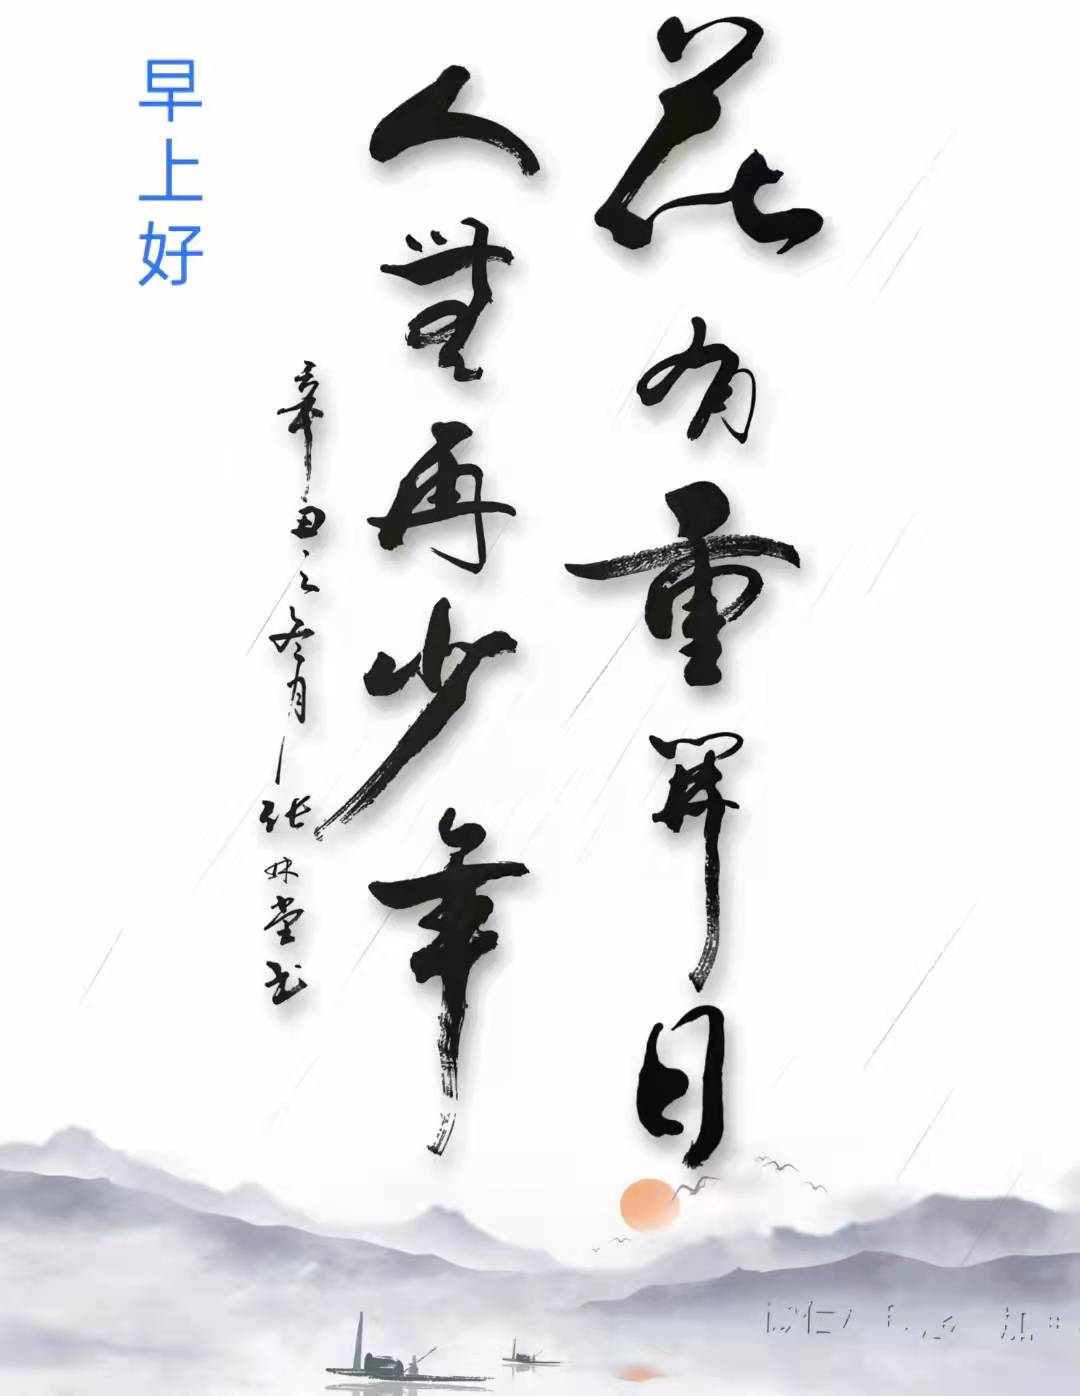 花有重開日
人無再少年
辛丑之冬月
张林堂书
早上好